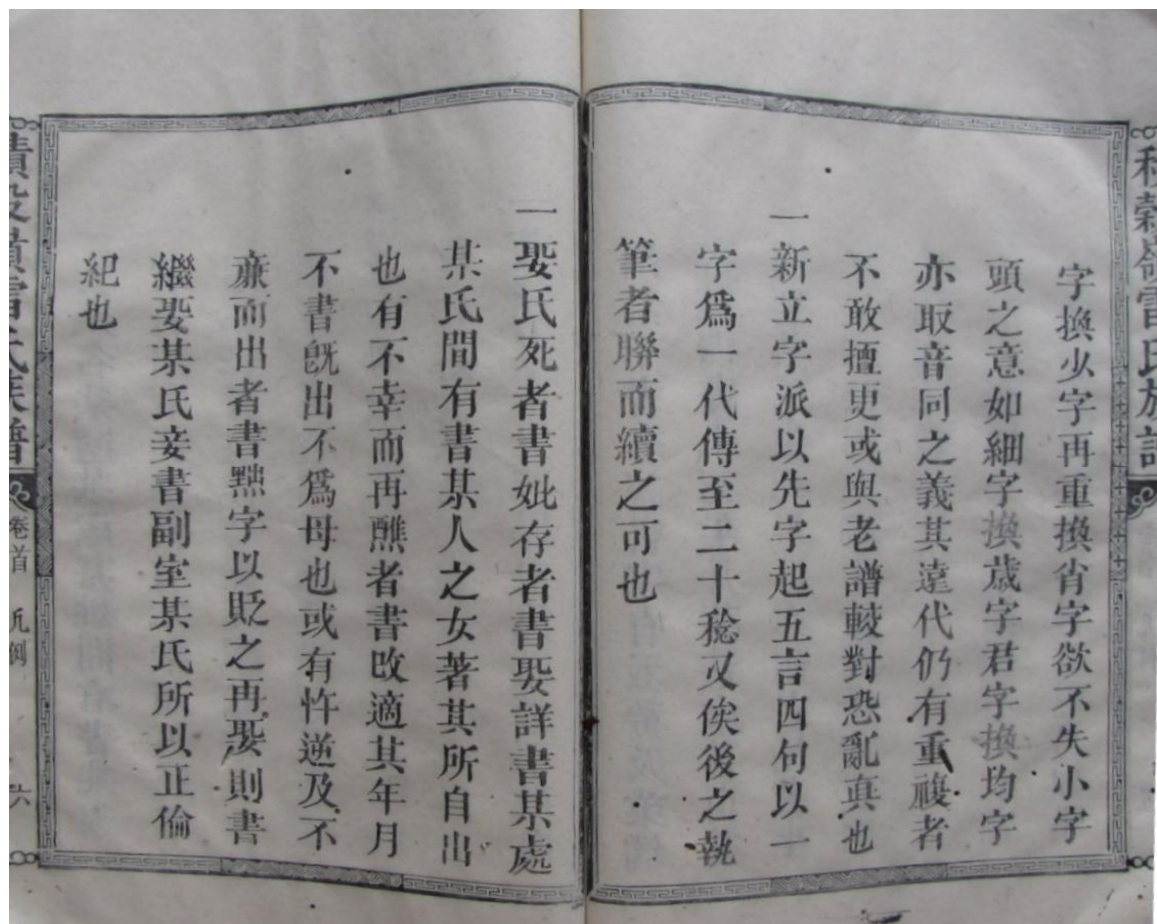 字換少字再重換肖字欲不失小字
頭之意如細字換歲字君字換均字
亦取音同之義其遠代仍有重複者
不敢擅更或與老譜較對恐亂真也
一新立字派以先字起五言四句以一
字爲一代傳至二十稔又俟後之執
筆者聯而續之可也
一娶氏死者書妣存者書娶詳書某處
某氏間有書某人之女著其所自出
也有不幸而再醮者書改適其年月
不書旣出不爲母也或有忤逆及不
亷而出者書黜字以貶之再娶則書
繼娶某氏妾書副室某氏所以正倫
紀也
積穀嶺雷氏族譜
卷首
凡例
六